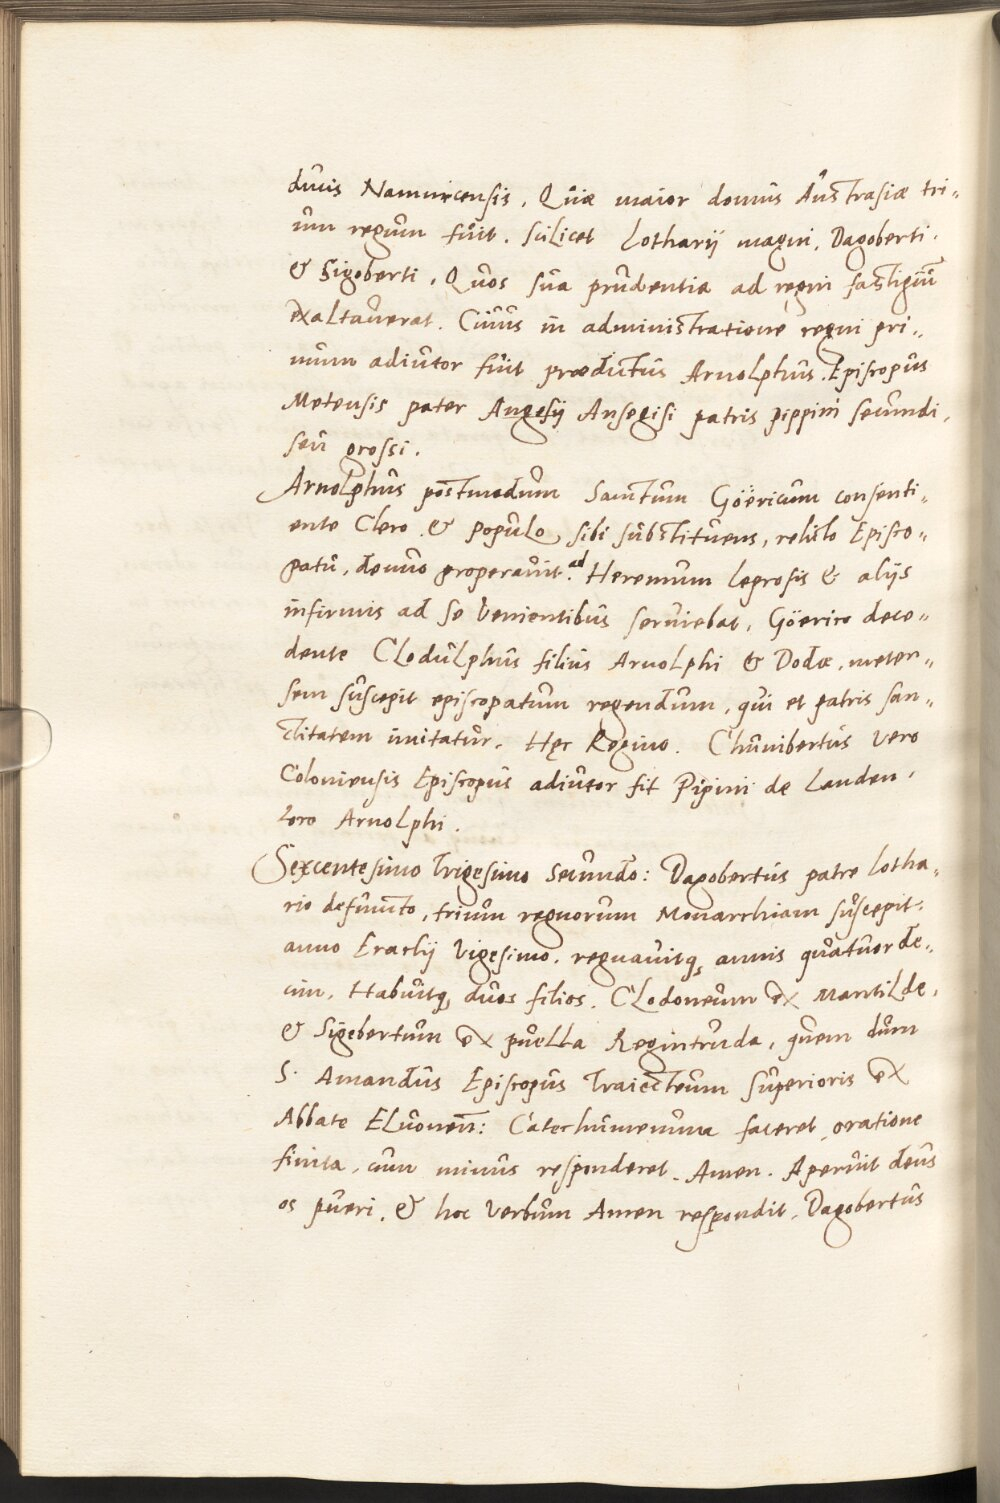 ducis Namurcensis, Quia maior domus Austrasiæ tri„
um regum fuit. scilicet Lotharij magni, Dagoberti.
& Sigoberti, Quos sua prudentia ad regni fastigiū
exaltaverat. Cuius in administratione regni pri„
mum adiutor fuit prædictus Arnolphus Episcopus
Metensis pater Angesij Ansegisi patris pippini secundi,
seu grossi.
Arnolphus postmodum Sanctum Göericum consenti„
ente Clero & Populo, sibi substituens, relicto Episco„
patu, domno properavit. ad Heremum leprosis & alijs
infirmis ad se venientibus serviebat, Göerico dece„
dente Clodulphus filius Arnolphi & Dodæ, meten„
sem suscepit episcopatum regendum, qui et patris san„
ctitatem imitatur. Hęc Regino. Chunibertus vero
Coloniensis Episcopus adiutor fit Pipini de Landen,
loco Arnolphi.
Sexcentesimo Trigesimo secundo: Dagobertus patre Lotha„
rio defuncto, trium regnorum Monarchiam suscepit:
anno Eraclij Vigesimo, regnavitq3 annis quatuor de„
cim, Habuitq3 duos filios. Clodoneum ex Mantilde,
& Sigebertum ex puella Regintruda, quem dum
S. Amandus Episcopus Traiecteum superioris ex
Abbate Eluonen̄: Catechumenum faceret, oratione
finita, cum minus responderet. Amen. Aperuit deus
os pueri, & hoc verbum Amen respondit, Dagobertus